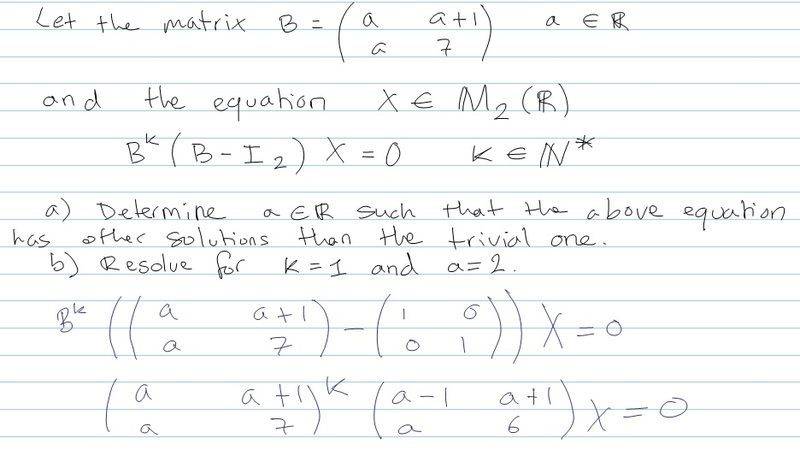 Let the matrix B = ( a a+1 ; a 7 ) a ∈ ℝ
and the equation X ∈ M₂(ℝ)
Bᵏ(B-I₂) X = 0 K ∈ ℕ*
a) Determine a ∈ ℝ such that the above equation
has other solutions than the trivial one.
b) Resolve for K=1 and a=2.
Bᵏ (( a a+1 ; a 7 ) - ( 1 0 ; 0 1 )) X = 0
( a a+1 ; a 7 )ᴷ ( a-1 a+1 ; a 6 ) X = 0